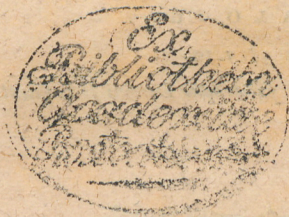 Ex
Bibliotheca
Academiae